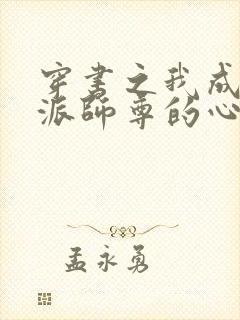 穿书之我成
派师尊的心
孟永勇